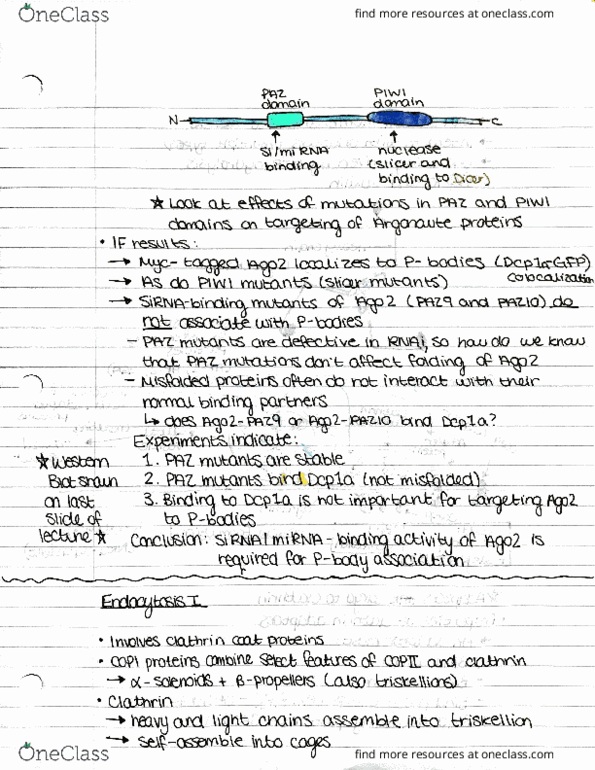 OneClass
find more resources at oneclass.com
PAZ domain
PIWI domain
N
C
si/miRNA binding
nuclease (slicer and binding to Dicer)
★ Look at effects of mutations in PAZ and PIWI
domains on targeting of Argonaute proteins
• IF results:
→ Myc-tagged Ago2 localizes to P-bodies (Dcp1a-GFP)
colocalization
→ As do PIWI mutants (slicer mutants)
→ SiRNA-binding mutants of Ago2 (PAZ9 and PAZ10) do
not associate with P-bodies
- PAZ mutants are defective in RNAi, so how do we know
that PAZ mutations don't affect folding of Ago2
- Misfolded proteins often do not interact with their
normal binding partners
↳ does Ago2-PAZ9 or Ago2-PAZ10 bind Dcp1a?
Experiments indicate:
★ Western
Blot shown
on last
slide of
lecture ★
1. PAZ mutants are stable
2. PAZ mutants bind Dcp1a (not misfolded)
3. Binding to Dcp1a is not important for targeting Ago2
to P-bodies
Conclusion: SiRNA/miRNA-binding activity of Ago2 is
required for P-body association
Endocytosis I
• Involves clathrin coat proteins
• COPI proteins combine select features of COPII and clathrin
→ α-solenoids + β-propellers (also triskellions)
• Clathrin
→ heavy and light chains assemble into triskellion
→ self-assemble into cages
OneClass
find more resources at oneclass.com